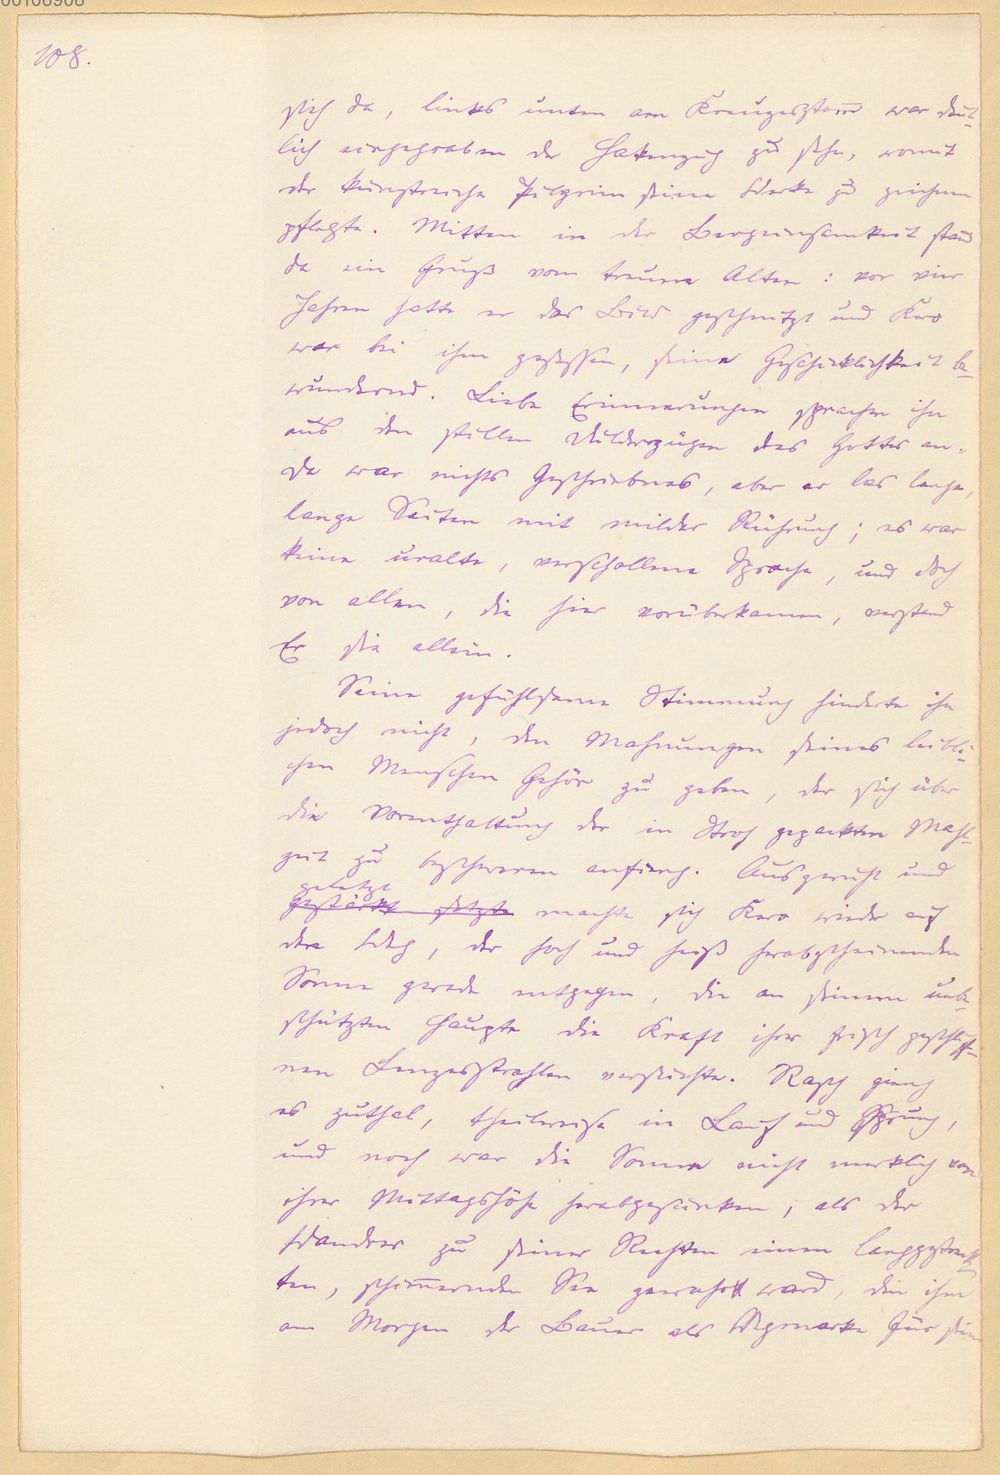 00106908
108.
sich da, links unten am Kreuzesstam̅ war deut-
lich eingegraben der Hakenzug zu sehn, womit
der kunstreiche Pilgrim seine Werke zu zeichnen
pflegte. Mitten in der Bergeinsamkeit stand
da ein Gruß vom treuen Alten: vor vier
Jahren hatte er das Bild geschnitzt und Kero
war bei ihm gesessen, seine Geschicklichkeit be-
wundernd. Liebe Erinnerungen sprachen ihn
aus den stillen Dulderzügen des Gottes an.
Da war nichts Geschriebnes, aber er las lange,
lange Seiten mit milder Rührung; es war
keine uralte, verschollene Sprache, und doch
von allen, die hier vorüberkamen, verstand
Er sie allein.
Seine gefühlsame Stimmung hinderte ihn
jedoch nicht, den Mahnungen seines leibli-
chen Menschen Gehör zu geben, der sich über
die Vorenthaltung der in Stroh gepackten Mahl-
zeit zu beschweren anfieng. Ausgeruht und
geletzt
gestärkt setzte machte sich Kero wieder auf
den Weg, der hoch und heiß herabscheinenden
Sonne gerade entgegen, die an seinem unbe-
schützten Haupte die Kraft ihrer frisch geschliff-
nen Lenzesstrahlen versuchte. Rasch gieng
es zuthal, theilweise in Lauf und Sprung,
und noch war die Sonne nicht merklich von
ihrer Mittagshöhe herabgesunken, als der
Wandrer zu seiner Rechten einen langgestreck-
ten, schim̅ernden See gewahrt ward, den ihm
am Morgen der Bauer als Wegmarke für sein